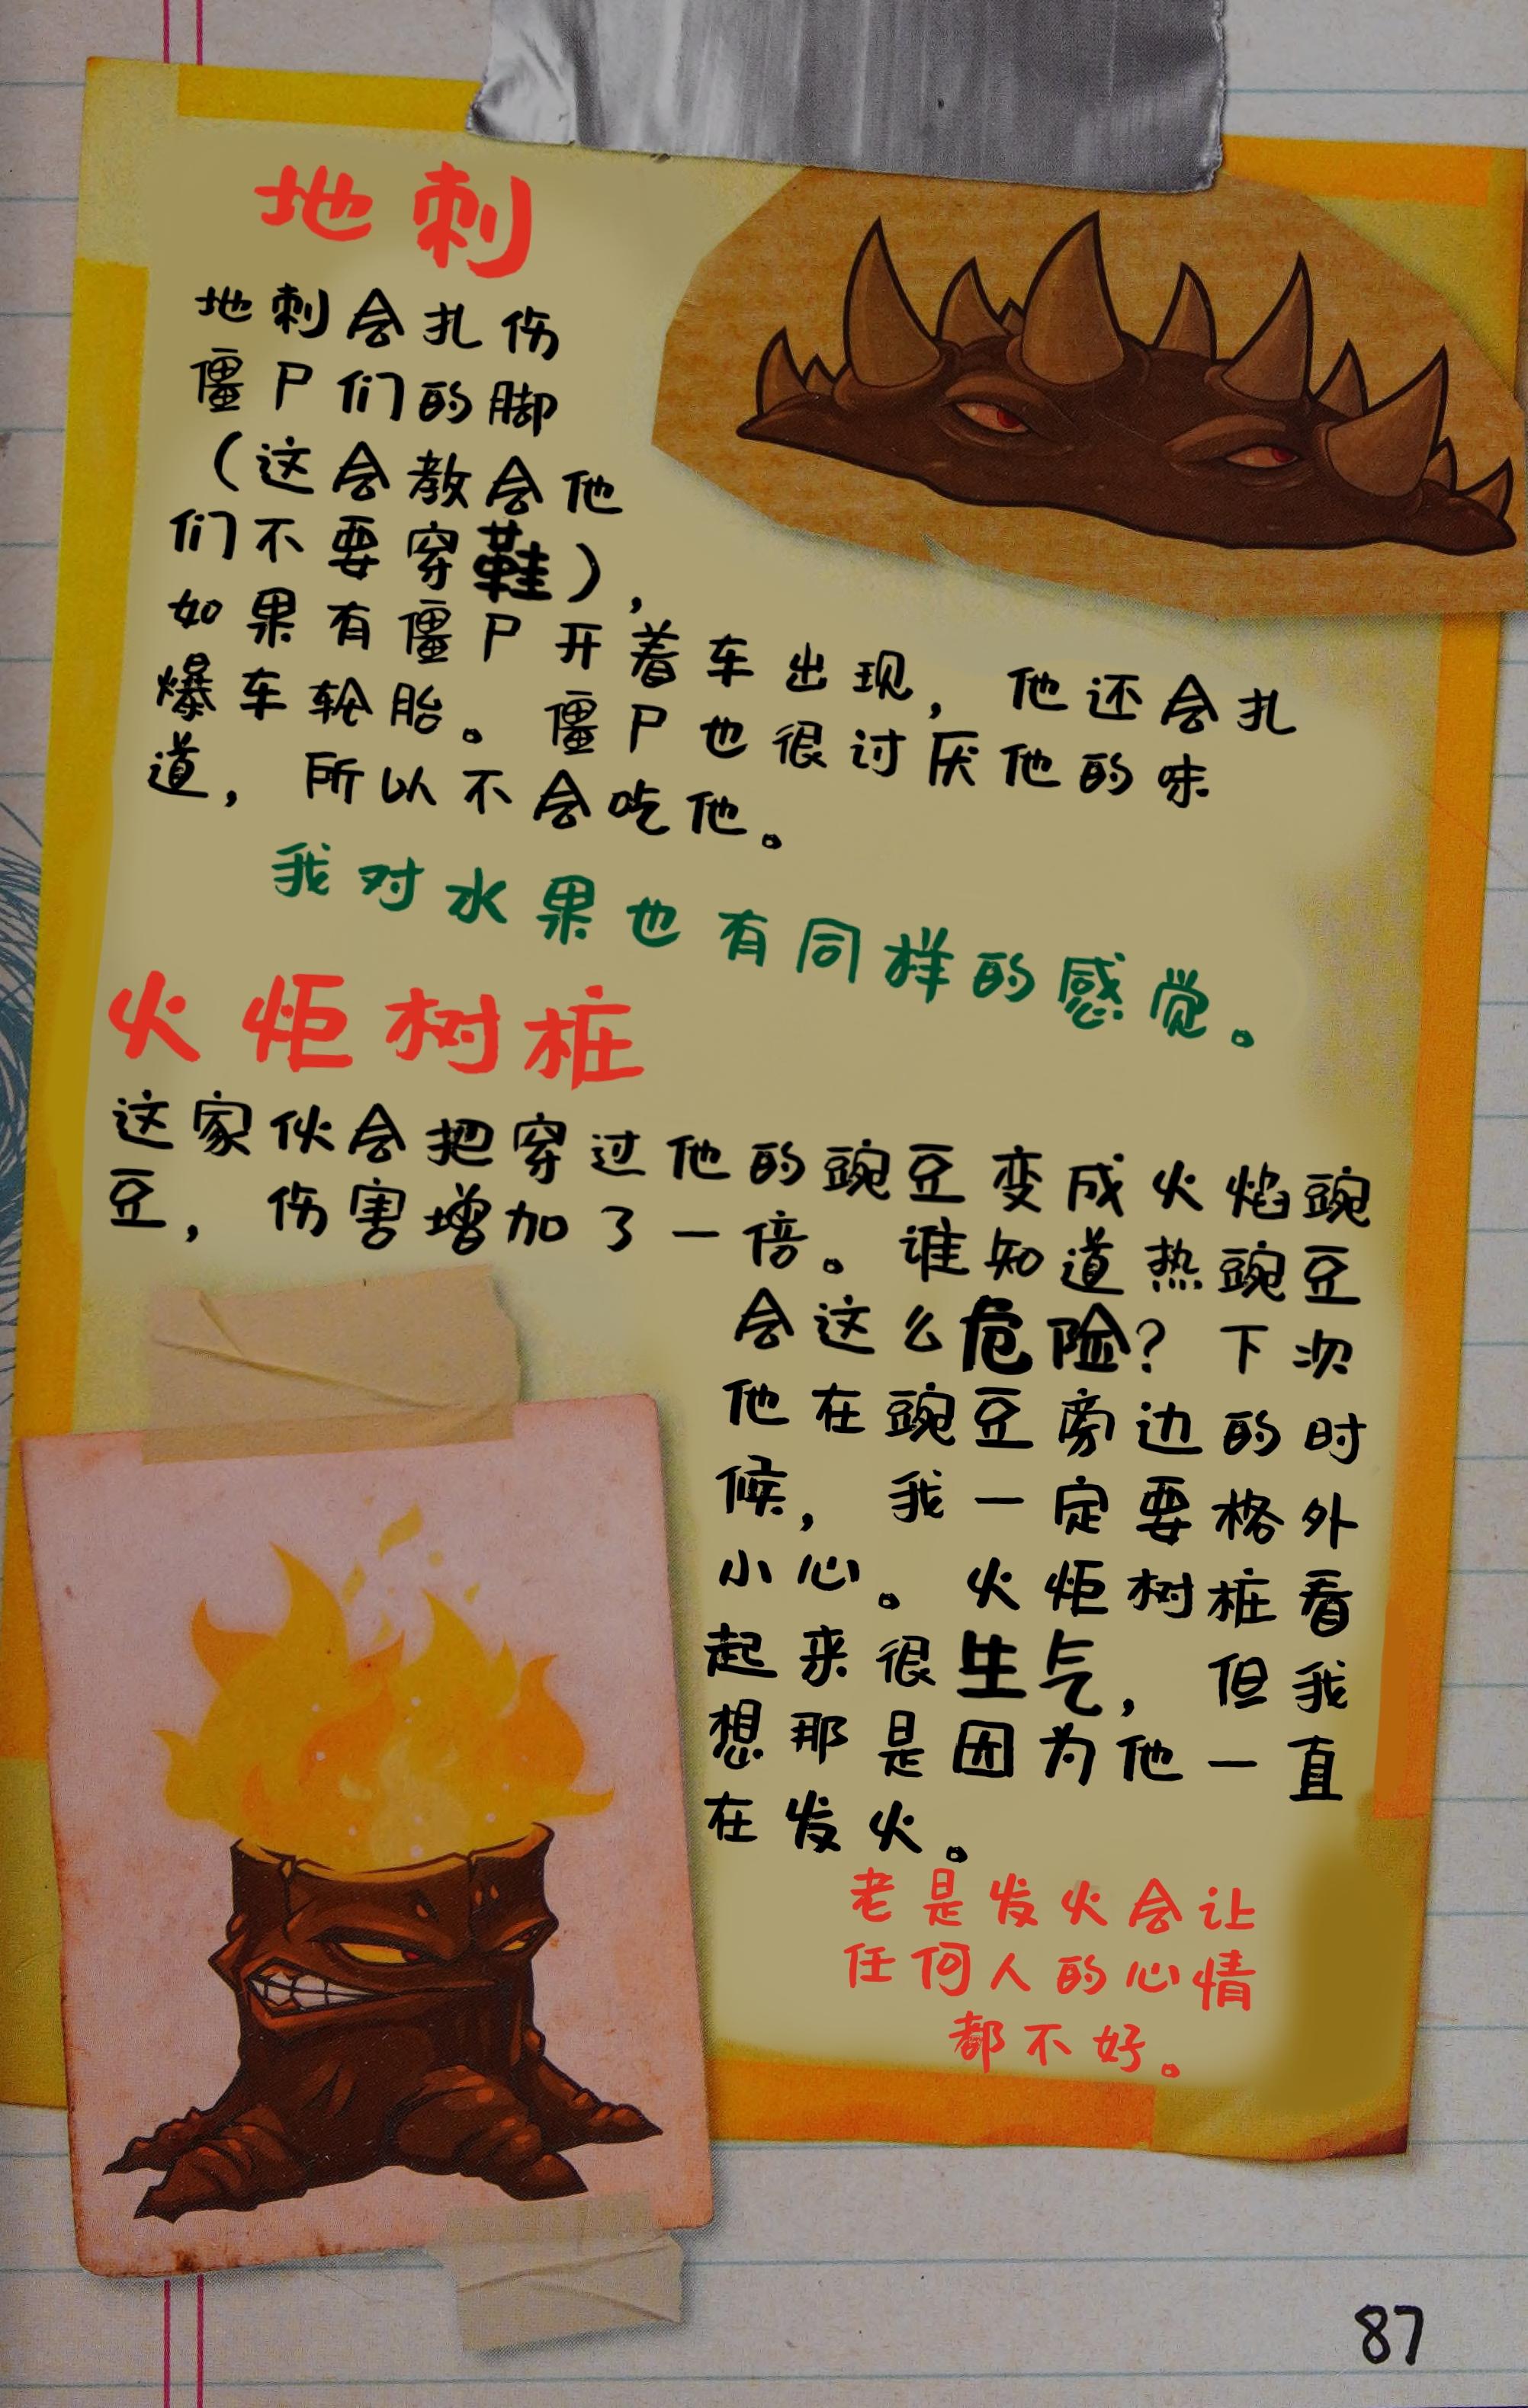 地刺
地刺会扎伤
僵尸们的脚
（这会教会他
们不要穿鞋），
如果有僵尸开着车出现，他还会扎
爆车轮胎。僵尸也很讨厌他的味
道，所以不会吃他。
我对水果也有同样的感觉。
火炬树桩
这家伙会把穿过他的豌豆变成火焰豌
豆，伤害增加了一倍。谁知道热豌豆
会这么危险？下次
他在豌豆旁边的时
候，我一定要格外
小心。火炬树桩看
起来很生气，但我
想那是因为他一直
在发火。
老是发火会让
任何人的心情
都不好。
87